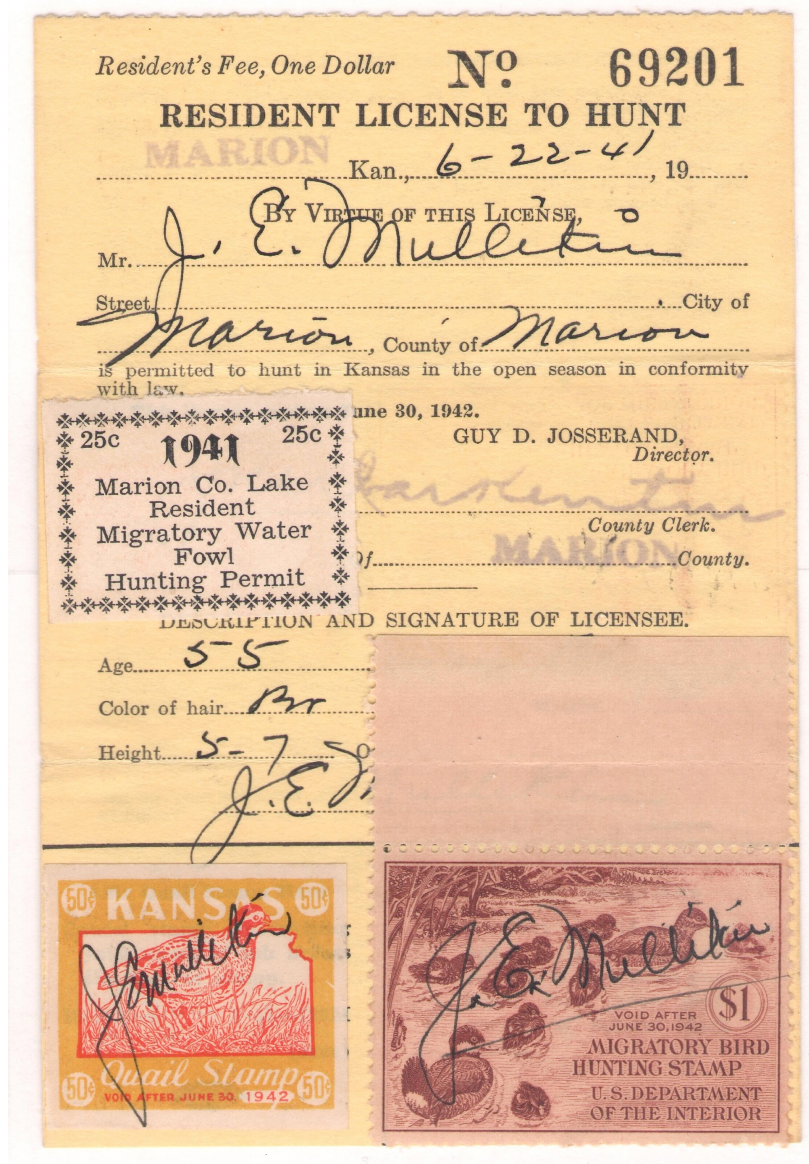 Resident's Fee, One Dollar No. 69201
RESIDENT LICENSE TO HUNT
MARION Kan., 6-22-41, 19
BY VIRTUE OF THIS LICENSE,
Mr. J. E. Mullikin
Street City of
Marion, County of Marion
is permitted to hunt in Kansas in the open season in conformity
with law.
une 30, 1942.
GUY D. JOSSERAND,
Director.
County Clerk.
of MARION County.
25c 1941 25c
Marion Co. Lake
Resident
Migratory Water
Fowl
Hunting Permit
DESCRIPTION AND SIGNATURE OF LICENSEE.
Age 55
Color of hair Br
Height 5-7 O
J. E. M
50¢ KANSAS 50¢
J E Mullikin
50¢ Quail Stamp 50¢
VOID AFTER JUNE 30, 1942
J. E. Mullikin
$1
VOID AFTER
JUNE 30, 1942
MIGRATORY BIRD
HUNTING STAMP
U.S. DEPARTMENT
OF THE INTERIOR